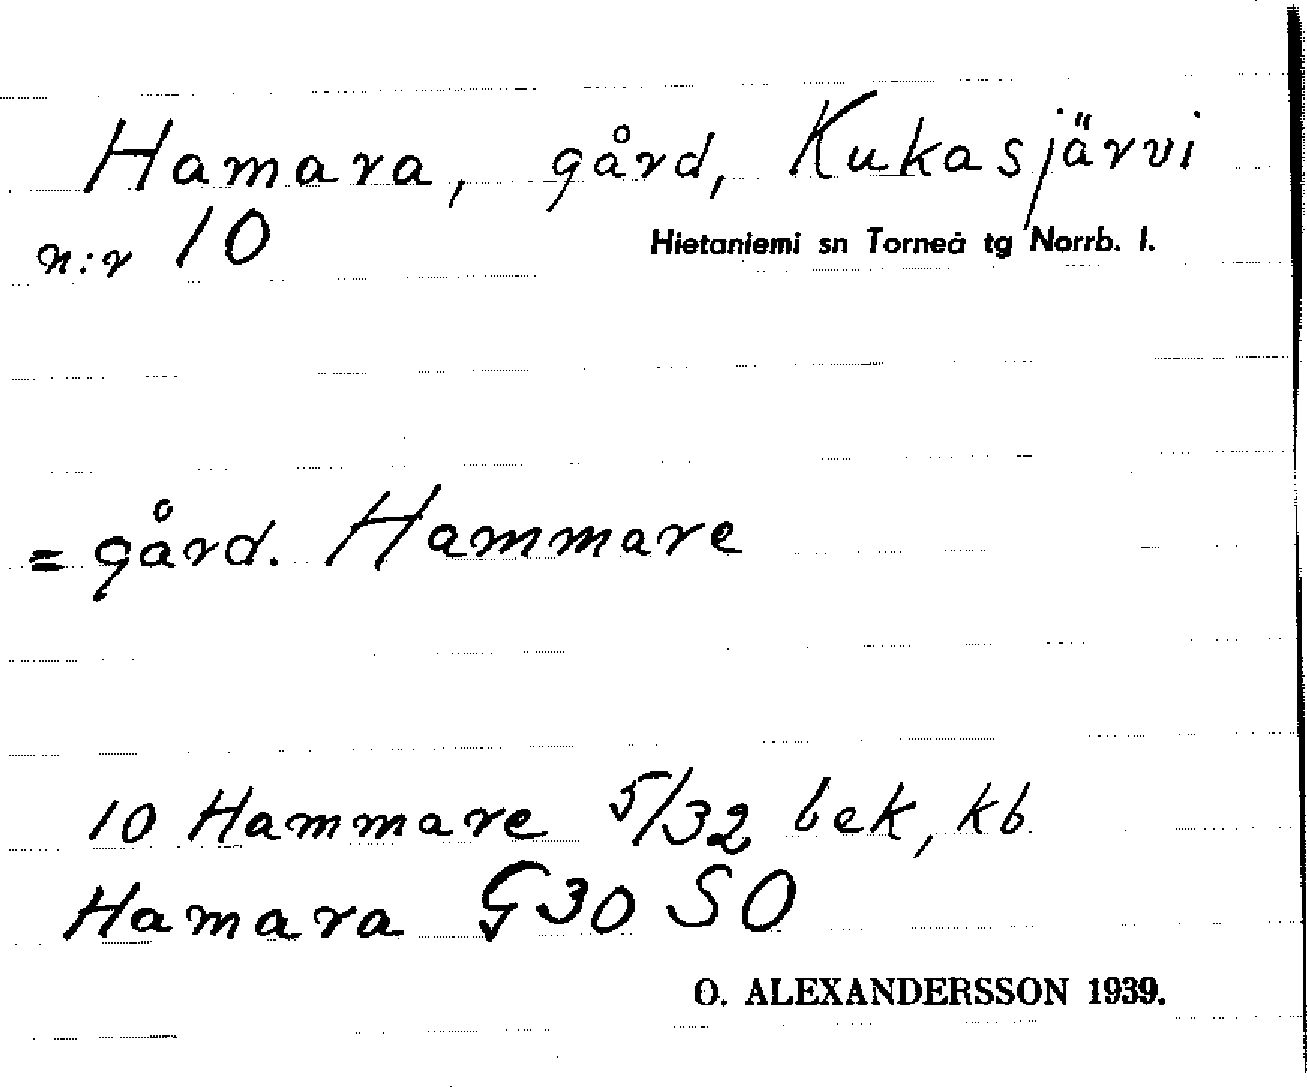 Hamara, gård, Kukasjärvi
n:r 10
Hietaniemi sn Torneå tg Norrb. l.
= gård. Hammare
10 Hammare 5/32 bek, kb
Hamara G30 SO
O. ALEXANDERSSON 1939.